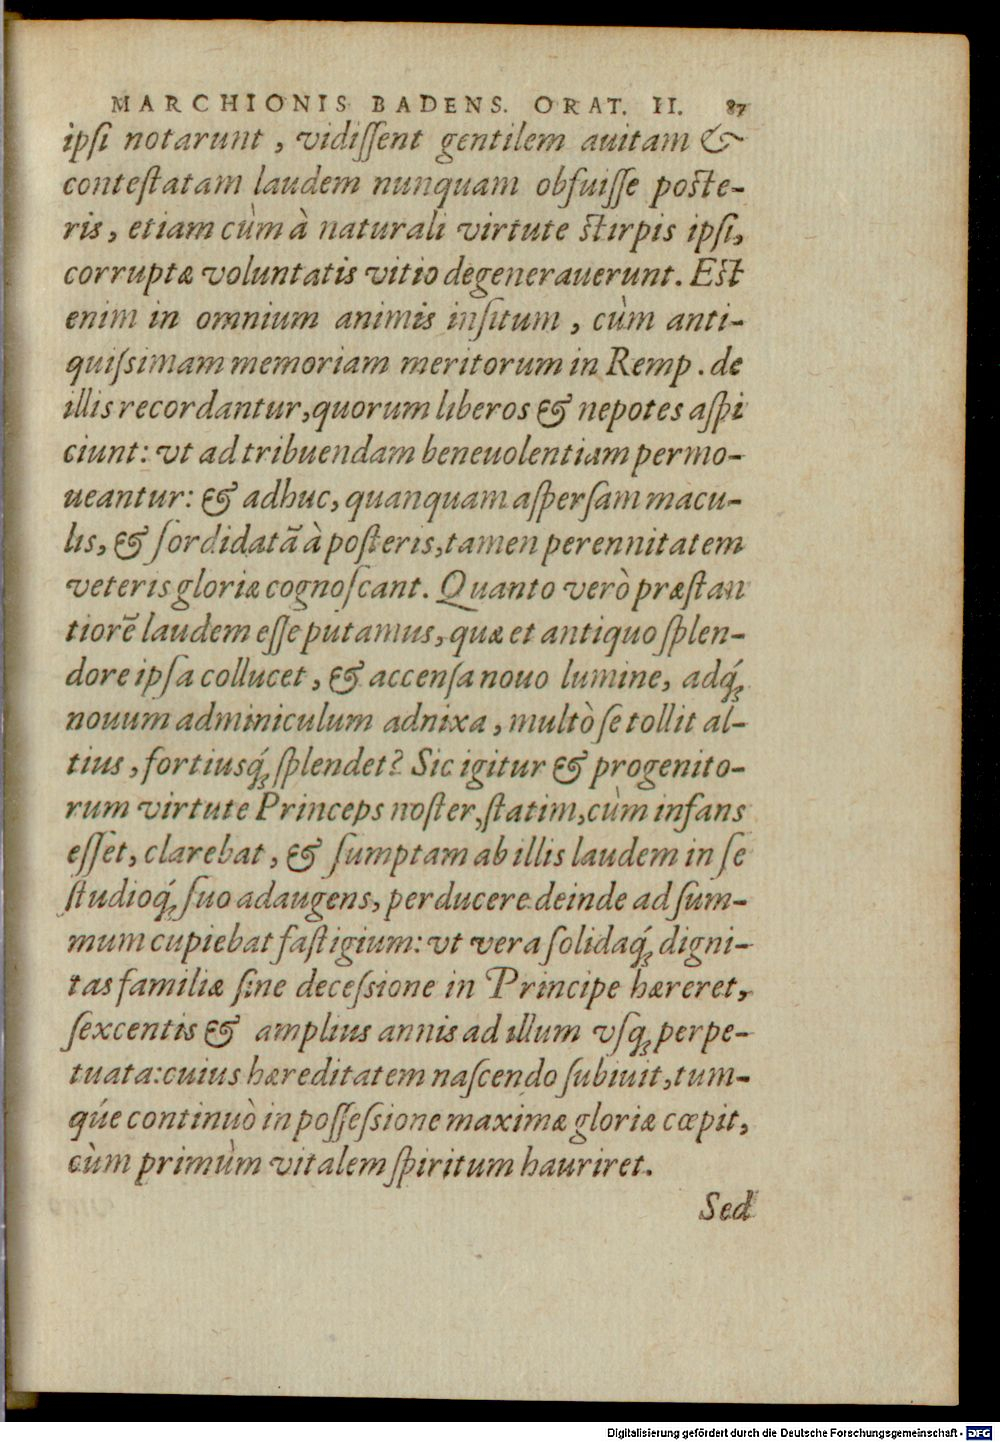 MARCHIONIS BADENS. ORAT. II. 87
ipſi notarunt, vidiſſent gentilem auitam &
conteſtatam laudem nunquam obfuiſſe poſte-
ris, etiam cùm à naturali virtute ſtirpis ipſi,
corruptæ voluntatis vitio degenerauerunt. Eſt
enim in omnium animis inſitum, cùm anti-
quiſsimam memoriam meritorum in Remp. de
illis recordantur, quorum liberos & nepotes aſpi
ciunt: vt ad tribuendam beneuolentiam permo-
ueantur: & adhuc, quanquam aſperſam macu-
lis, & ſordidatã à poſteris, tamen perennitatem
veteris gloriæ cognoſcant. Quanto verò præſtan
tiorẽ laudem eſſe putamus, quæ et antiquo ſplen-
dore ipſa collucet, & accenſa nouo lumine, adq́;
nouum adminiculum adnixa, multò ſe tollit al-
tius, fortiusq́; ſplendet? Sic igitur & progenito-
rum virtute Princeps noſter, ſtatim, cùm infans
eſſet, clarebat, & ſumptam ab illis laudem in ſe
ſtudioq́; ſuo adaugens, perducere deinde ad ſum-
mum cupiebat faſtigium: vt vera ſolidaq́; digni-
tas familiæ ſine deceſsione in Principe hæreret,
ſexcentis & amplius annis ad illum vſq; perpe-
tuata: cuius hæreditatem naſcendo ſubiuit, tum-
q́ue continuò in poſſeſsione maximæ gloriæ cœpit,
cùm primùm vitalem ſpiritum hauriret.
Sed
Digitalisierung gefördert durch die Deutsche Forschungsgemeinschaft - DFG